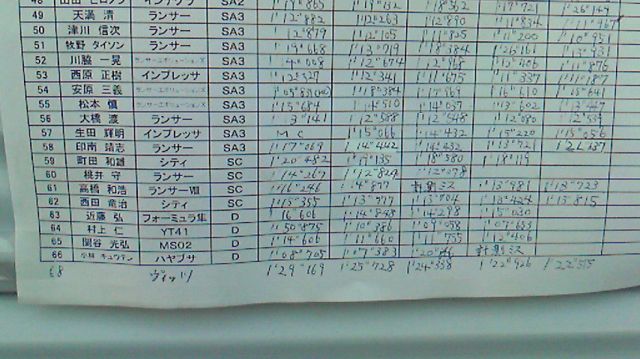 49 天満 清 ランサー SA3 1'12"882 1'12"263 1'12"890 1'11"834 1'11"967
50 津川 信次 ランサー SA3 1'12"879 1'12"105 1'11"825 1'11"200 1'10"951
51 牧野 タイソン ランサー SA3 1'19"668 1'13"719 1'18"384 1'13"931
52 川脇 一晃 ランサーエボリューションX SA3 1'12"674 1'12"968 1'12"406 1'11"876
53 西原 正樹 インプレッサ SA3 1'12"327 1'12"341 1'11"675 1'11"337 1'11"187
54 安原 三義 ランサーエボリューションX SA3 1'18"384 1'17"569 1'16"610 1'15"641
55 松本 慎 ランサーエボリューションX SA3 1'15"684 1'14"510 1'14"037 1'13"602 1'13"447
56 大橋 渡 ランサー SA3 1'13"141 1'12"588 1'12"548 1'12"080 1'12"534
57 生田 輝明 インプレッサ SA3 M C 1'15"066 1'14"432 1'15"220 1'15"056
58 印南 靖志 ランサー SA3 1'17"069 1'14"442 1'14"432 1'13"721
59 町田 和雄 シティ SC 1'20"482 1'19"135 1'18"580 1'18"119
60 桃井 守 ランサー SC 1'14"267 1'12"824 1'12"078
61 高橋 和浩 ランサーVIII SC 1'16"246 1'14"877 計測ミス 1'13"981 1'13"723
62 西田 竜治 シティ SC 1'15"355 1'13"717 1'13"704 1'13"424 1'13"815
63 近藤 弘 フォーミュラ隼 D 16"606 1'14"848 1'14"298 1'15"030
64 村上 仁 YT41 D 1'50"875 1'10"386 1'09"058 1'07"653
65 関谷 光弘 MS02 D 1'14"606 1'11"660 1'11"755 1'12"406
66 小林 キュウテン ハヤブサ D 1'08"705 1'07"383 計測ミス
68 ヴィッツ 1'29"169 1'25"728 1'24"358 1'22"926 1'22"515